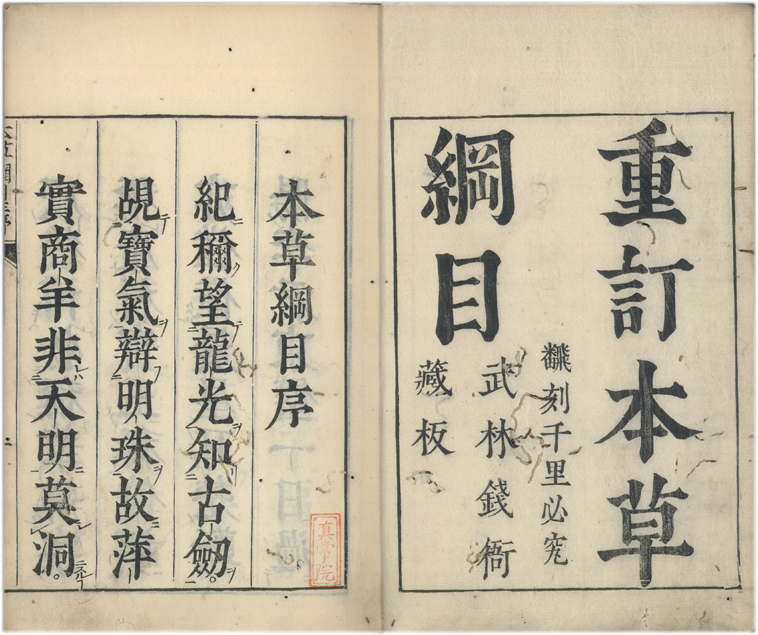 重訂本草
綱目
飜刻千里必究
武林錢衙
藏板
本草綱目序
紀穪望龍光知古劒
覘寶氣辯明珠故萍
實商羊非天明莫洞